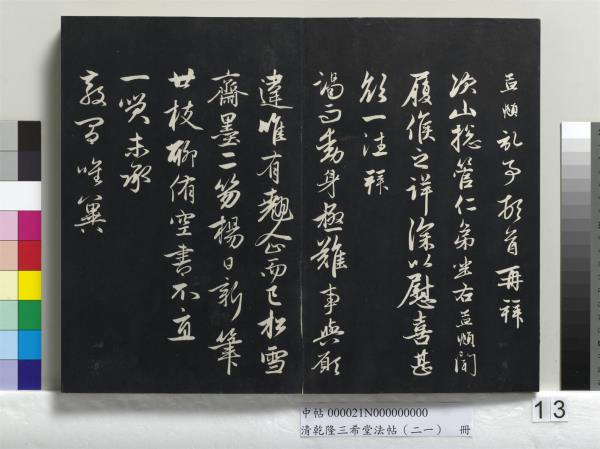 孟頫記事頓首再拜
次山總管仁弟坐右孟頫聞
履候之詳深以慰喜甚
欲一往拜
謁而動身極難事與願
違唯有翹企而已松雪
齋墨二笏楊日新筆
廿枝聊侑空書不直
一笑未承
教間唯冀
中帖 000021N000000000
清乾隆三希堂法帖（二一） 冊
13